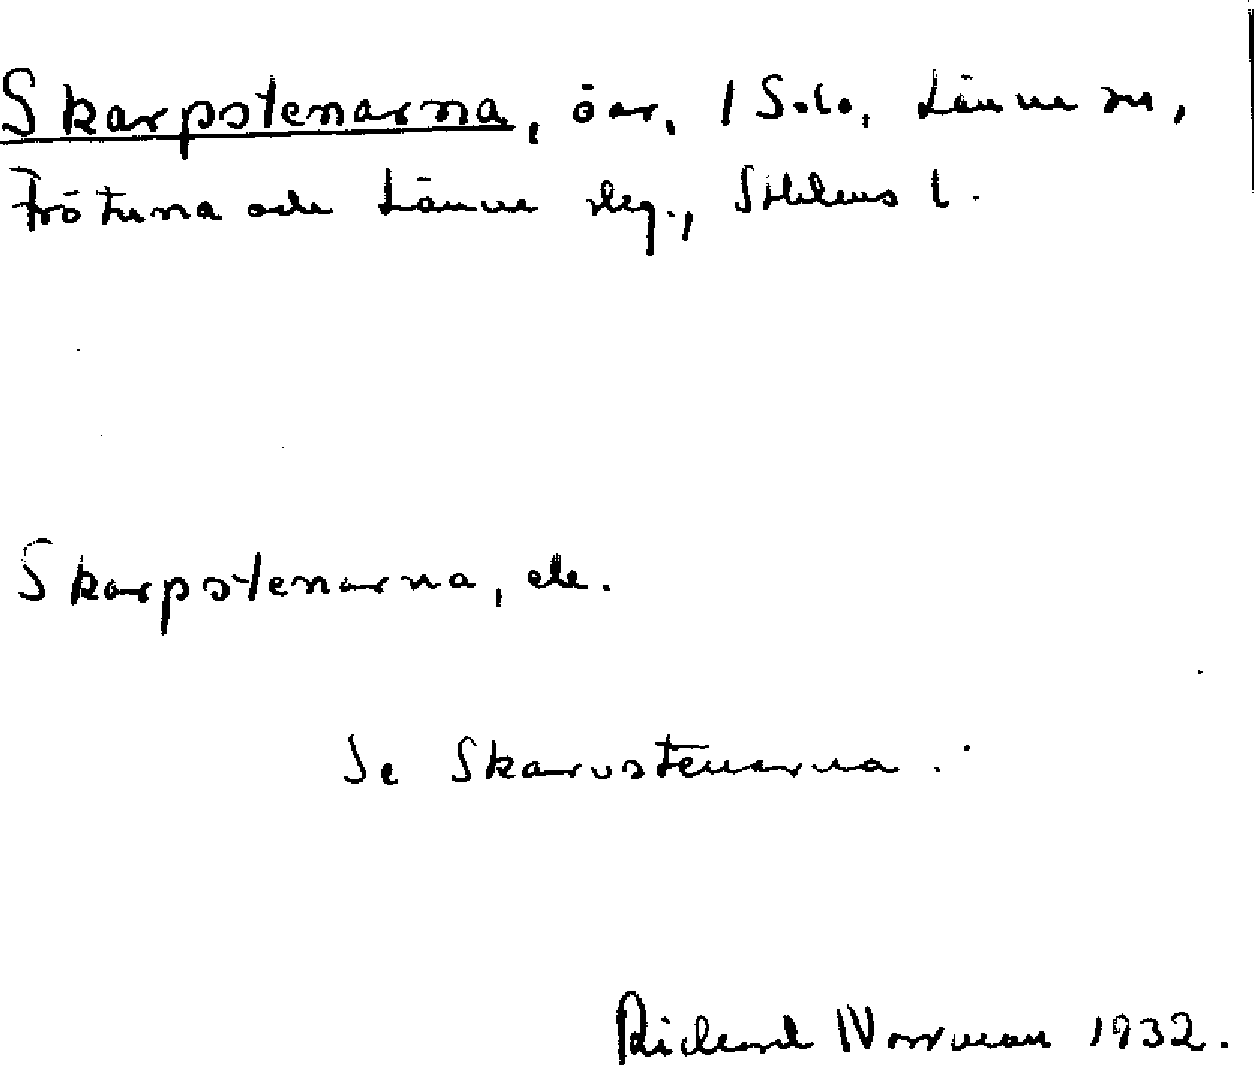 Skarpstenarna, öar, / Solö, Länna sn,
Frötuna och Länna skg., Sthlms l.
Skarpstenarna, ele.
Se Skarvstenarna.
Richard Norrman 1932.